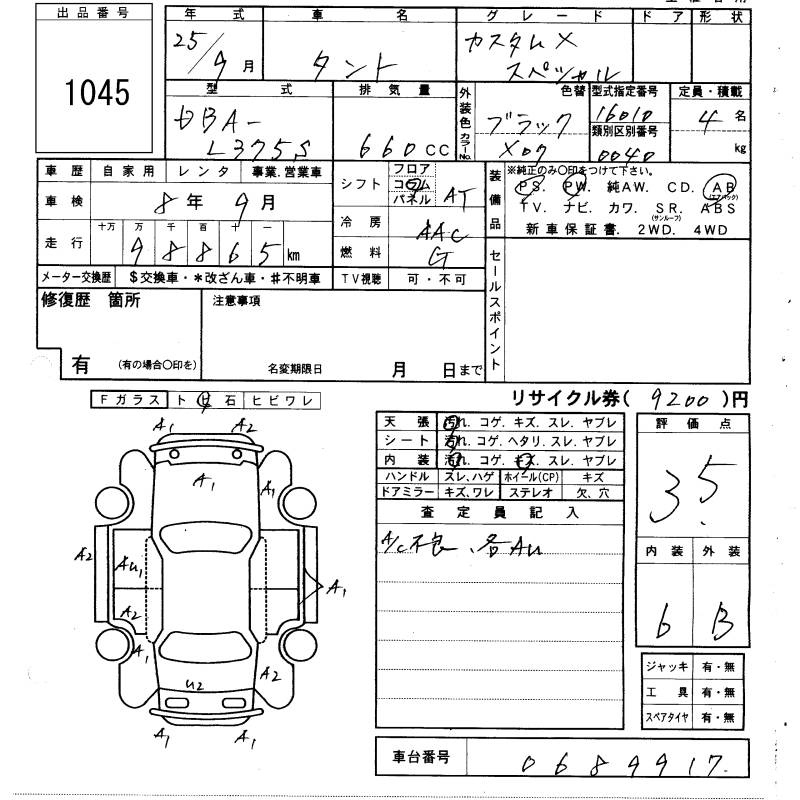 出品番号
1045
年式 車名 グレード ドア 形状
25/9月 タント カスタムX スペシャル
型式 排気量 外装色 色替 カラーNo. 型式指定番号 定員・積載
DBA-L375S 660CC ブラック X07 16010 4名
類別区別番号
0040 kg
車歴 自家用 レンタ 事業.営業車
車検 8年 9月
走行 十万 万 千 百 十 一
98865km
メーター交換歴 $交換車・*改ざん車・#不明車
シフト フロア コラム パネル AT
冷房 AAC
燃料 G
TV視聴 可・不可
装備品 ※純正のみ〇印をつけて下さい。
PS. PW. 純AW. CD. AB(エアバック)
TV. ナビ. カワ. SR.(サンルーフ) ABS
新車保証書. 2WD. 4WD
セールスポイント
修復歴 箇所
有 (有の場合〇印を)
注意事項
名変期限日 月 日まで
リサイクル券( 9200 )円
Fガラス ト ビ 石 ヒビワレ
A1 A2
A1 A1
A2 AU1 A1
A2
A1
U2 A2
A1 A1
天張 汚れ. コゲ. キズ. スレ. ヤブレ
シート 汚れ. コゲ. ヘタリ. スレ. ヤブレ
内装 汚れ. コゲ. キズ. スレ. ヤブレ
ハンドル スレ、ハゲ ホイール(CP) キズ
ドアミラー キズ、ワレ ステレオ 欠、穴
査定員記入
A/C不良、各AU
評価点
3.5
内装 外装
6 B
ジャッキ 有・無
工具 有・無
スペアタイヤ 有・無
車台番号 0689917